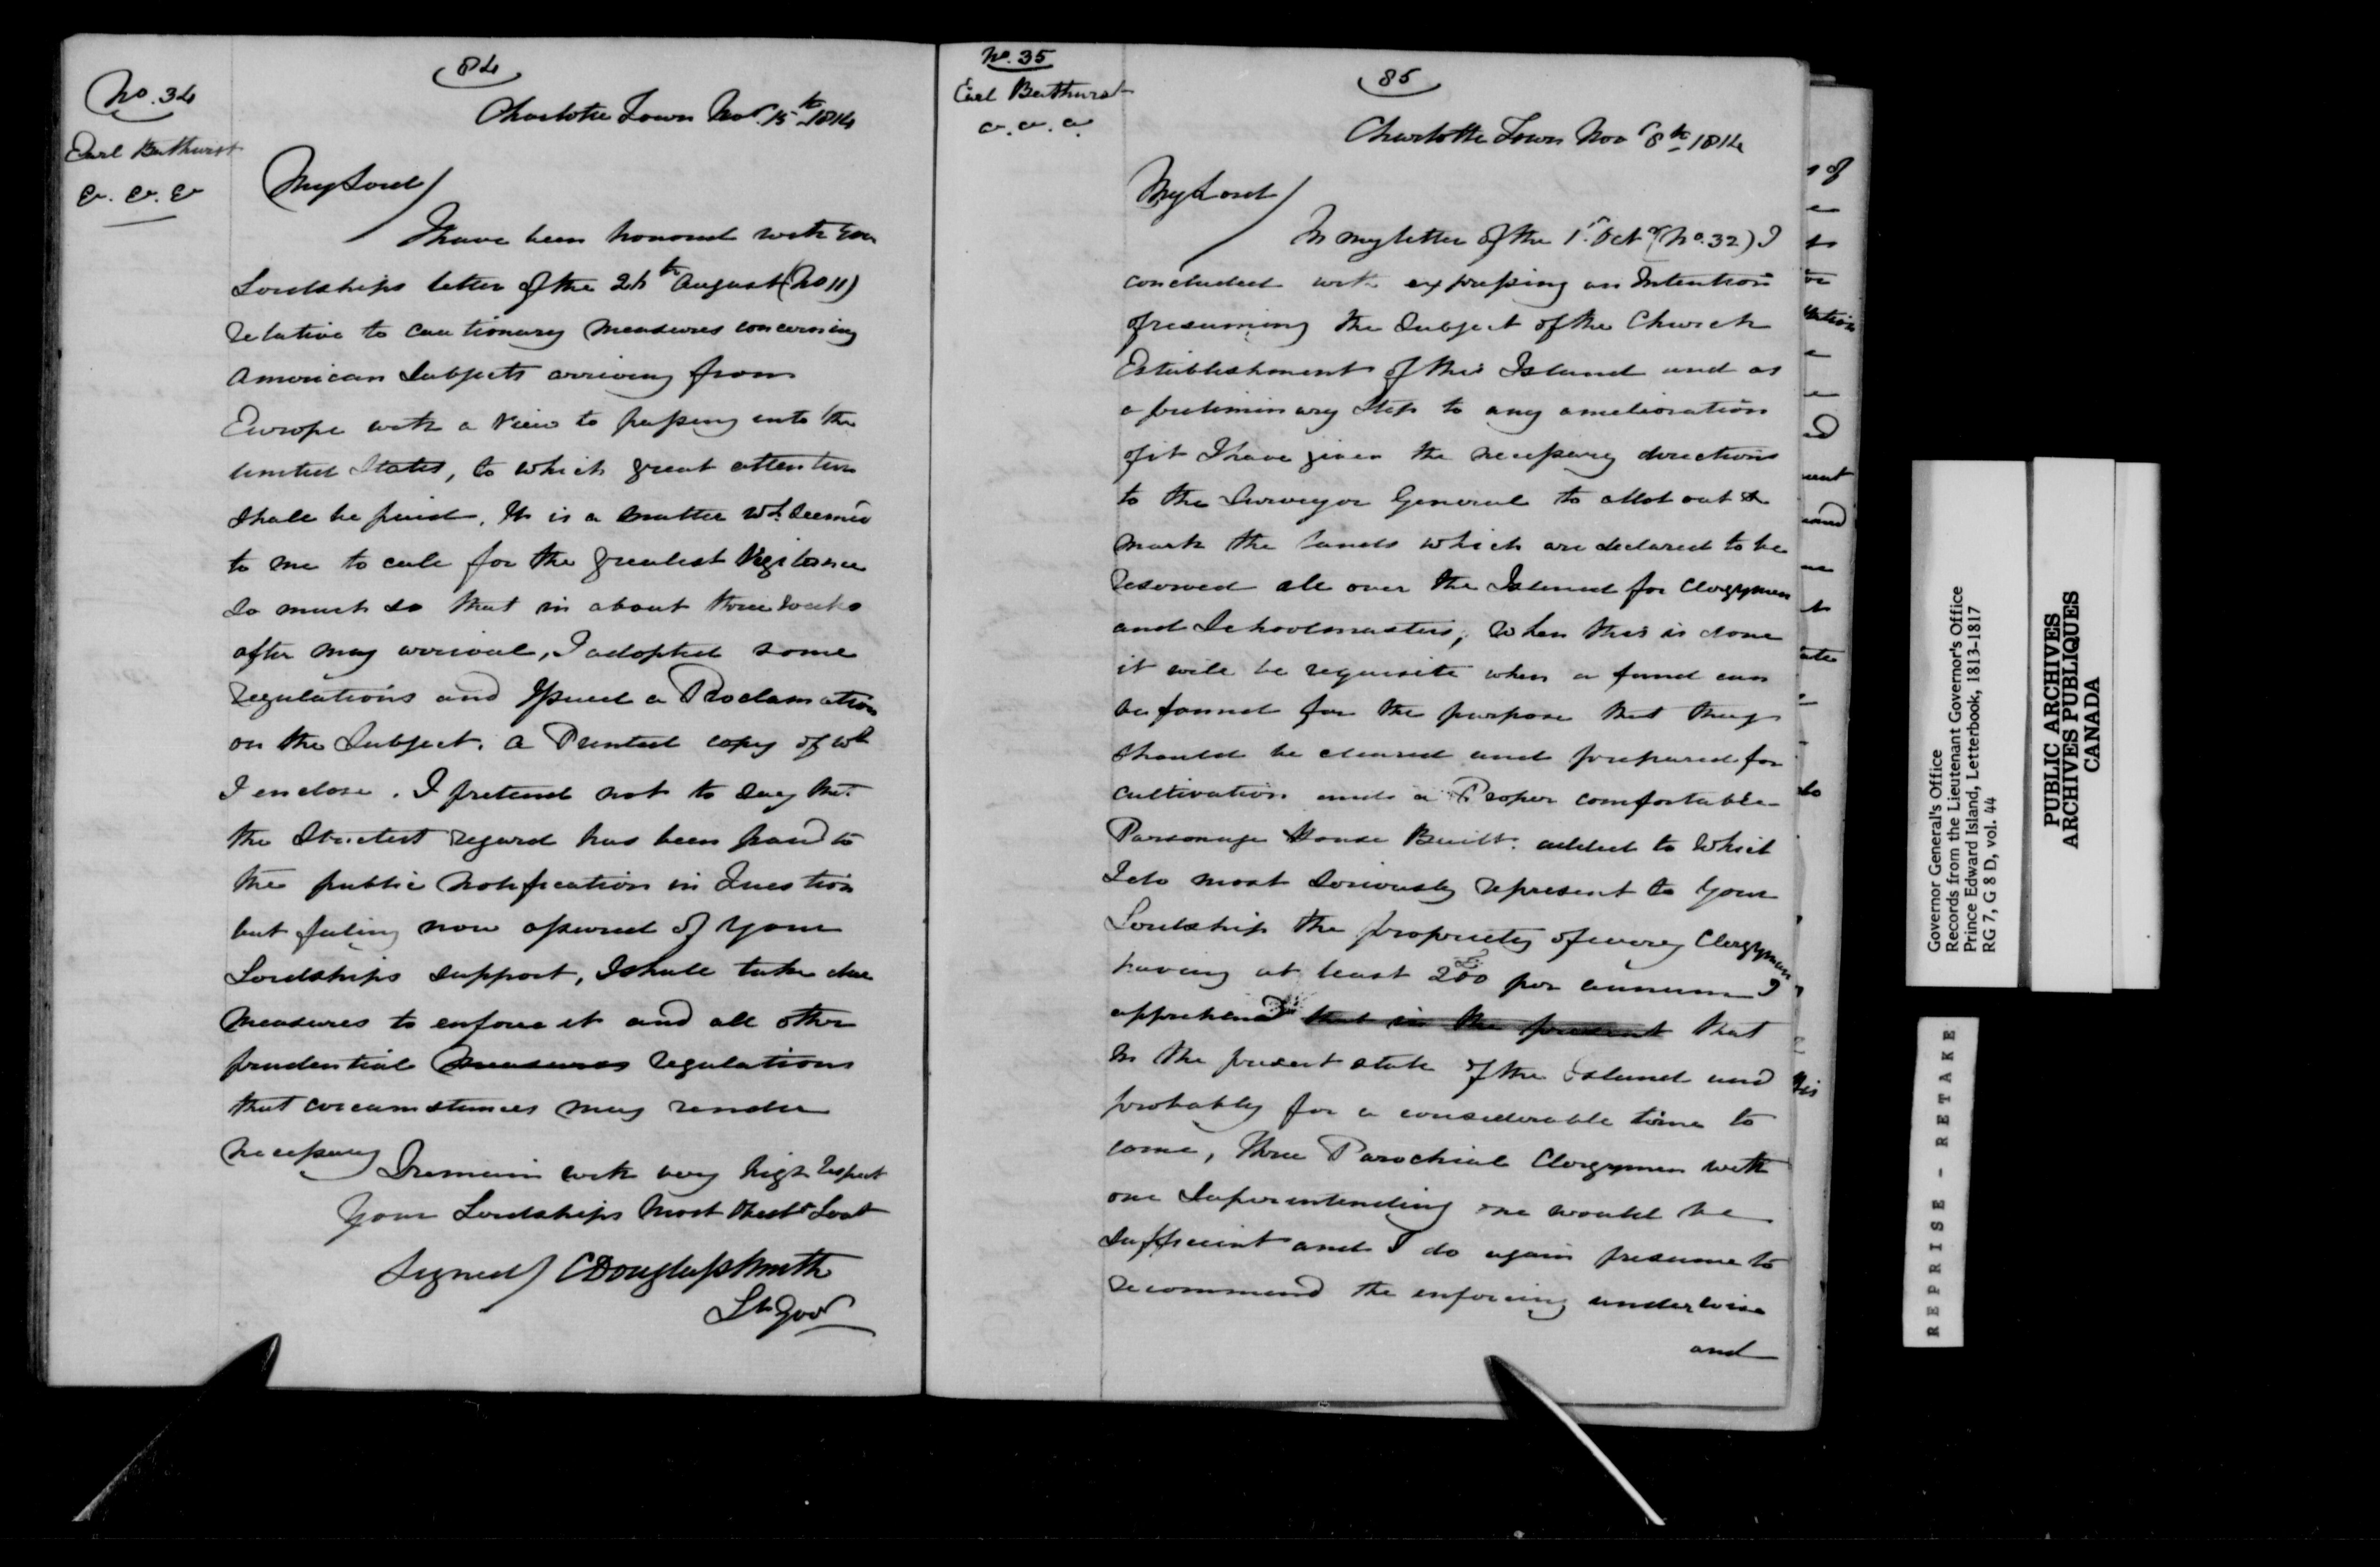 84
No. 34
Earl Bathurst
&. &. &
Charlotte Town Nov.r 15th 1814
My Lord/
I have been honored with Your
Lordships letter of the 26th August (No 11)
relative to cautionary Measures concerning
American Subjects arriving from
Europe with a View to passing into the
United States, to which great attention
Shall be paid. It is a Matter wh. Seemed
to me to call for the greatest Vigilance
So much so that in about three weeks
after my arrival, I adopted some
regulations and Issued a Proclamation
on the Subject, a Printed copy of wh
I enclose. I pretend not to Say that
the Strictest regard has been paid to
the public Notification in Question
but feeling now assured of Your
Lordships support, I shall take due
Measures to enforce it and all other
prudential measures regulations
that circumstances may render
necessary I remain with very high Respect
Your Lordships Most Obedt Servt
Signed/ C Douglass Smith
Lt Govr
No. 35
Earl Bathurst
&. &. &
85
Charlotte Town Novr 8th 1814
My Lord/
In my letter of the 1st. Octr (No. 32) I
concluded with expressing an Intention
of resuming the Subject of the Church
Establishment of this Island and as
a preliminary Step to any amelioration
of it I have given the necessary directions
to the Surveyor General to allot out &
mark the lands which are declared to be
reserved all over the Island for Clergymen
and Schoolmasters; When this is done
it will be requisite when a fund can
be found for the purpose that they
should be cleared and prepared for
cultivation and a Proper comfortable
Parsonage House Built. added to which
I do most Seriously represent to Your
Lordship the propriety of every Clergyman
having at least £200 per annum I
apprehend that in the present that
in the present state of the Island and
probably for a considerable time to
come, three Parochial Clergymen with
one Superintending one would be
Sufficient and I do again presume to
recommend the enforcing under
and
Governor General's Office
Records from the Lieutenant Governor's Office
Prince Edward Island, Letterbook, 1813-1817
RG 7, G 8 D, vol. 44
PUBLIC ARCHIVES
ARCHIVES PUBLIQUES
CANADA
REPRISE - RETAKE